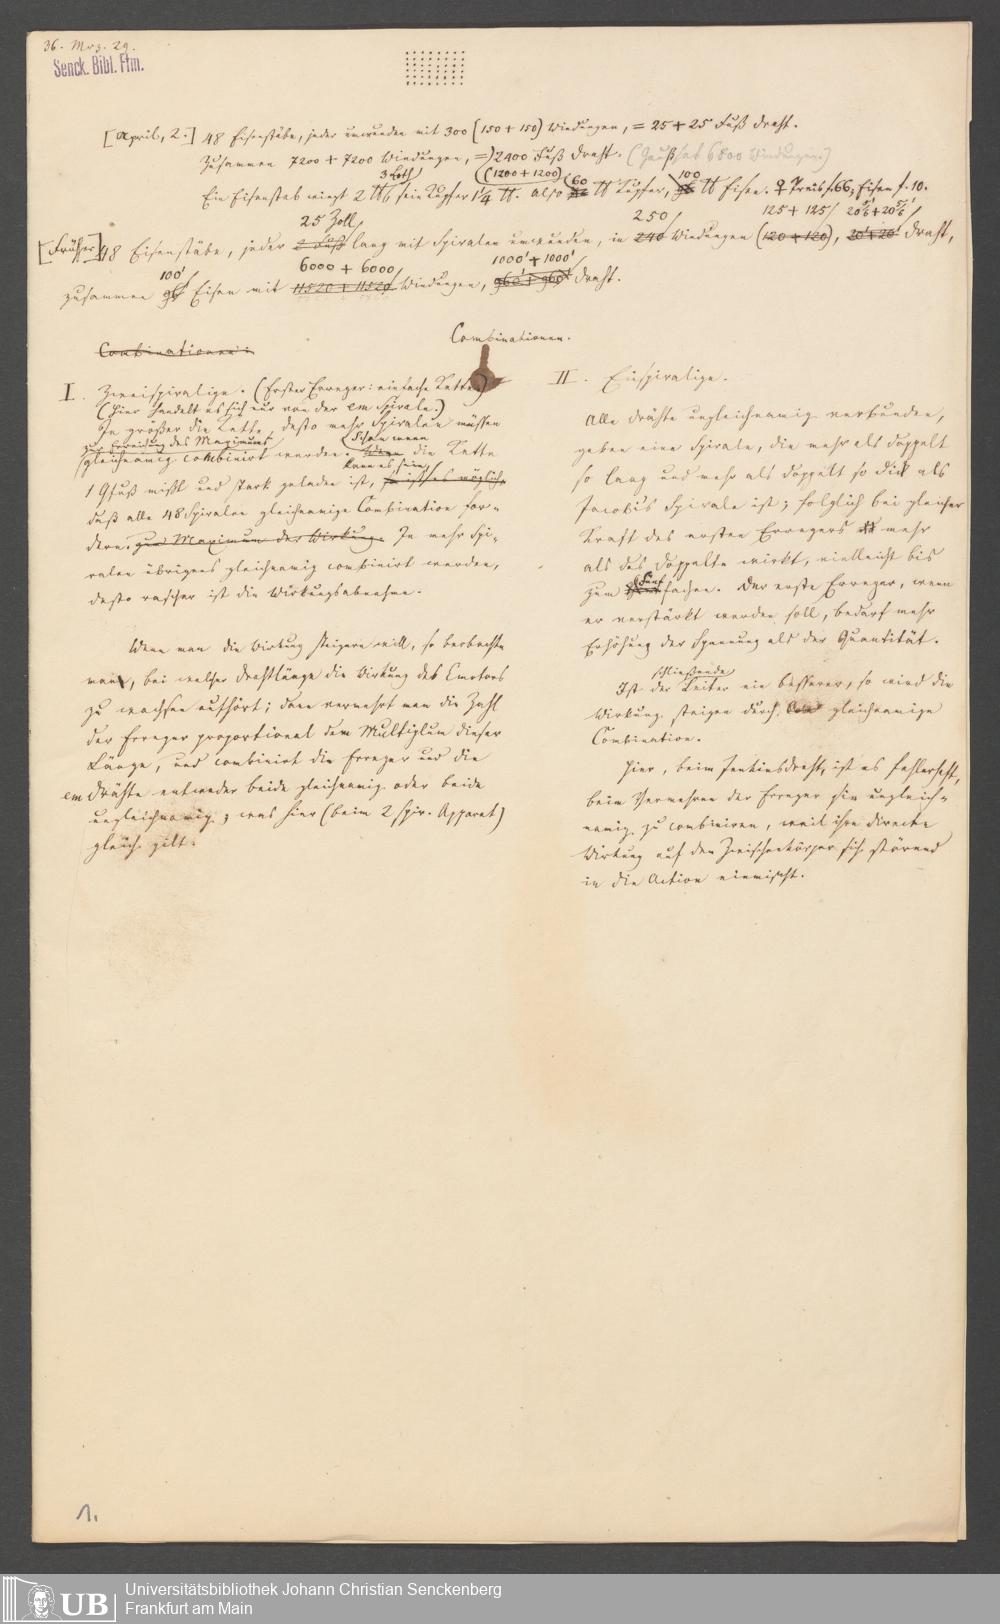 36. Mrz. 29.
Senck. Bibl. Ffm.
[April, 2.] 48 Eisenstäbe, jeder umwunden mit 300 (150 + 150) Windungen, = 25 + 25 Fuß Draht.
Zusammen 7200 + 7200 Windungen, = 2400 Fuß Draht. (Gauß hat 6800 Windungen.)
3 Loth (1200 + 1200) 60 100
Ein Eisenstab wiegt 2 ℔, sein Kupfer 1 1/4 ℔. Also ℔ Kupfer, ℔ Eisen. ♀ Preis f. 66, Eisen f. 10.
25 Zoll 250 125 + 125 20 5/6 + 20 5/6
[Früher] 48 Eisenstäbe, jeder 2 Fuß lang mit Spiralen umwunden, in 240 Windungen (120 + 120), 20' + 20' Draht,
100' 6000 + 6000 1000' + 1000'
zusammen 96' Eisen mit 11520 + 11520 Windungen, 960' + 960' Draht.
Combinationen:
Combinationen.
I. Zweispiralige. (Erster Erreger: einfache Kette)
(Hier handelt es sich nur von der em Spirale.)
Je größer die Kette, desto mehr Spiralen müssen
zur Erreichung des Maximums
gleichnamig combinirt werden. Wenn die Kette
Schon wenn
kann es sein
1 Qfuß mißt und stark geladen ist, so ist es möglich,
daß alle 48 Spiralen gleichnamige Combination for-
dern. zum Maximum der Wirkung. Je mehr Spi-
ralen übrigens gleichnamig combinirt werden,
desto rascher ist die Wirkungsabnahme.
Wenn man die Wirkung steigern will, so beobachte
man, bei welcher Drahtlänge die Wirkung des Emotors
zu wachsen aufhört; dann vermehrt man die Zahl
der Erreger proportional dem Multiplum dieser
Länge, und combinirt die Erreger und die
em Drähte entweder beide gleichnamig oder beide
ungleichnamig; was hier (beim 2 spir. Apparat)
gleich gilt.
II. Einspiralige.
Alle Drähte ungleichnamig verbunden,
geben eine Spirale, die mehr als doppelt
so lang und mehr als doppelt so dick als
Jacobi's Spirale ist; folglich bei gleicher
Kraft des ersten Erregers mehr
als das Doppelte wirkt, vielleicht bis
zum fünffachen. Der erste Erreger, wenn
er verstärkt werden soll, bedarf mehr
Erhöhung der Spannung als der Quantität.
schließende
Ist der Leiter ein besserer, so wird die
Wirkung steigen durch gleichnamige
Combination.
Hier, beim Inductionsdraht, ist es fehlerhaft,
beim Vermehren der Erreger sie ungleich-
namig zu combiniren, weil ihre directe
Wirkung auf den Zwischenkörper sich störend
in die Action einmischt.
1.
UB
Universitätsbibliothek Johann Christian Senckenberg
Frankfurt am Main